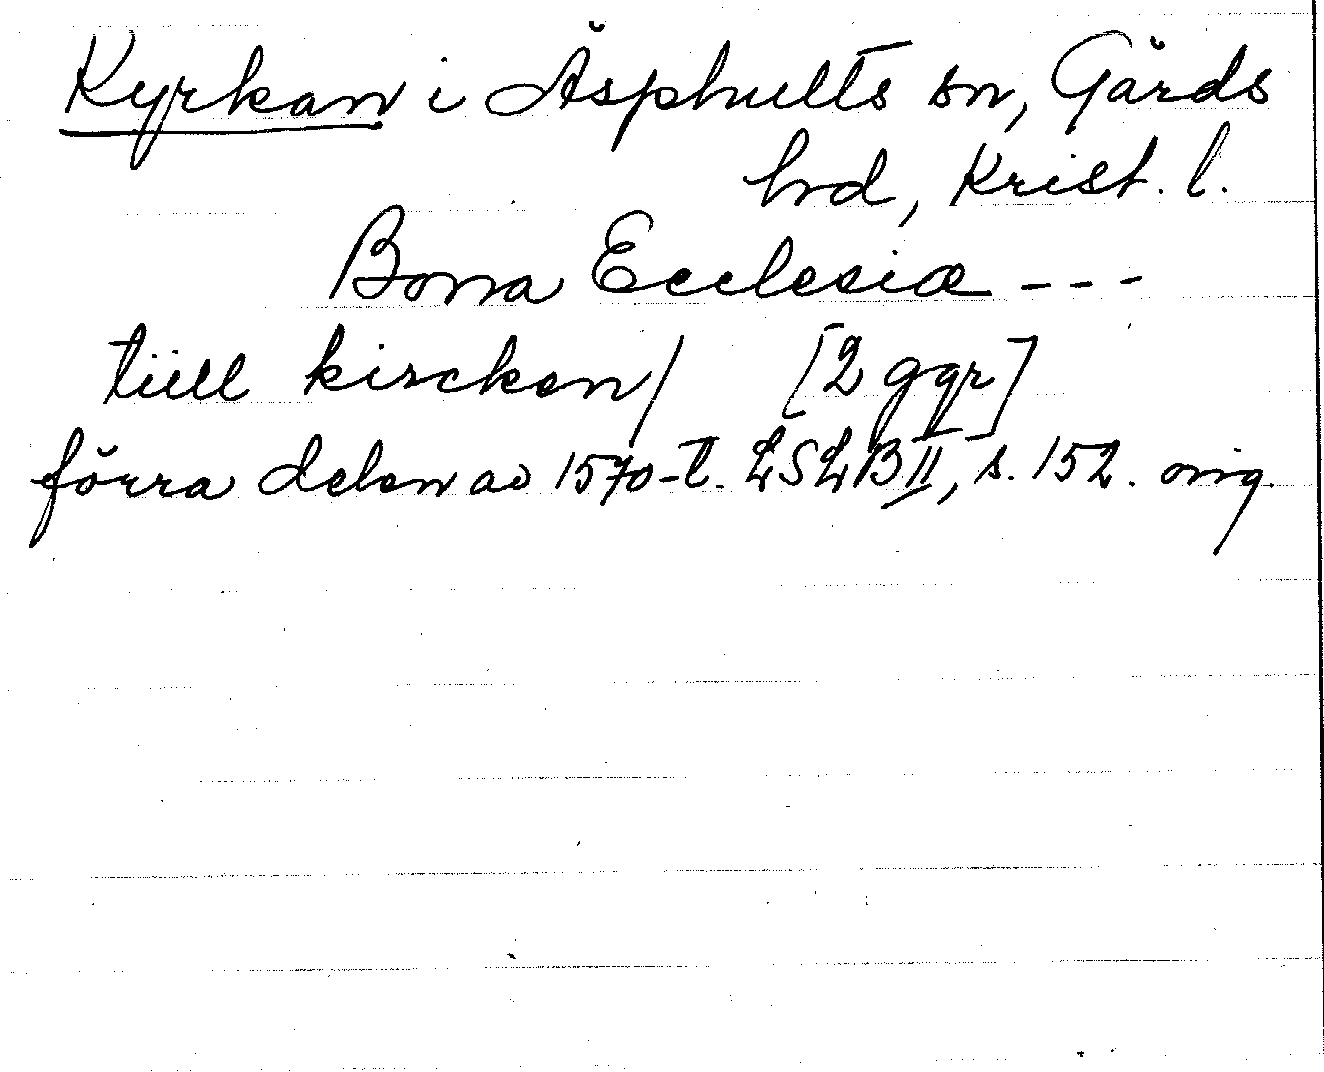 Kyrkan i Äsphults sn, Gärds
hrd, Krist. l.
Bona Ecclesiæ ---
tiill kircken/ [2 ggr]
förra delen av 1570-t. LSLB II, s. 152. orig.